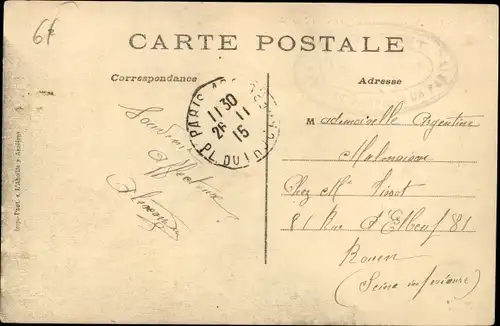 6f
CARTE POSTALE
Correspondance
Adresse
PARIS
11 30
26 11
15
PL. DU
DE PARIS
Mademoiselle Argentine
Chez Mr
81 Rue d'Elbeuf 81
Rouen
(Seine inférieure)
Souvenir
Affectueux
Imp-Phot. « L'Abeille » Asnières